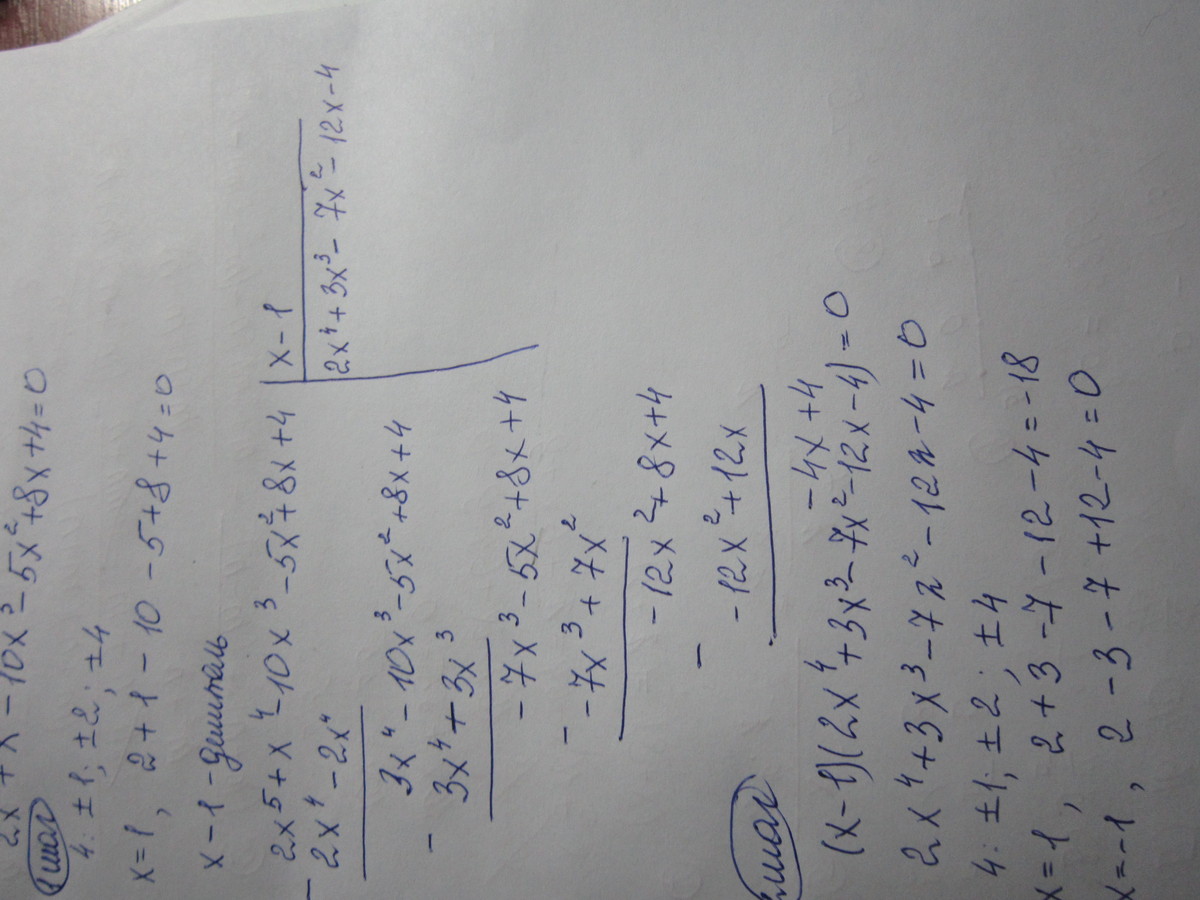 2x + x - 10x³ - 5x² + 8x + 4 = 0
1 шаг
4: ±1; ±2; ±4
x=1, 2+1-10-5+8+4=0
x-1 - делитель
2x⁵+x⁴-10x³-5x²+8x+4 | x-1
- 2x⁴-2x⁴ 2x⁴+3x³-7x²-12x-4
3x⁴-10x³-5x²+8x+4
- 3x⁴+3x³
-7x³-5x²+8x+4
- -7x³+7x²
-12x²+8x+4
- -12x²+12x
-4x+4
шаг (x-1)(2x⁴+3x³-7x²-12x-4)=0
2x⁴+3x³-7x²-12x-4=0
4: ±1; ±2; ±4
x=1, 2+3-7-12-4=-18
x=-1, 2-3-7+12-4=0